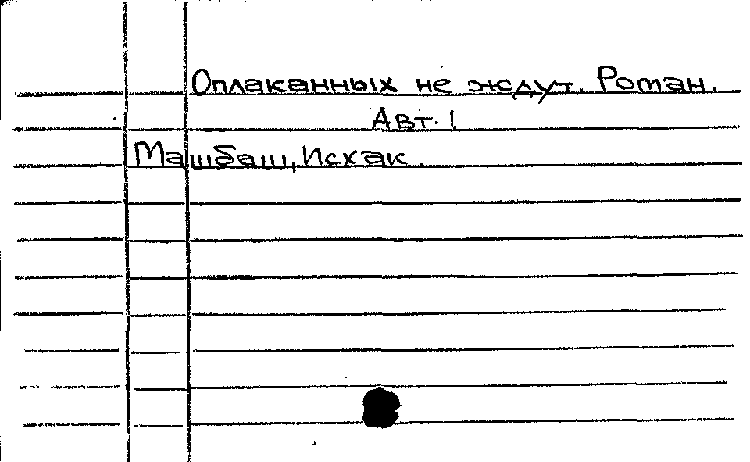 Оплаканных не ждут. Роман.
Авт. 1
Машбаш, Исхак.